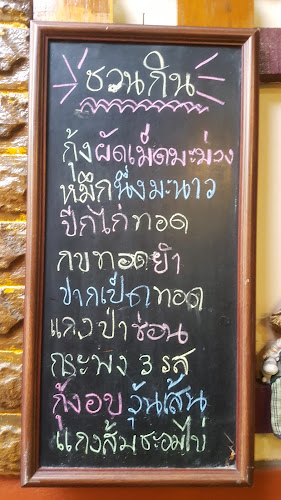 ชวนกิน
กุ้งผัดเม็ดมะม่วง
หมึกนึ่งมะนาว
ปีกไก่ทอด
กบทอดยำ
ปากเป็ดทอด
แกงป่าช่อน
กระพง 3 รส
กุ้งอบวุ้นเส้น
แกงส้มชะอมไข่